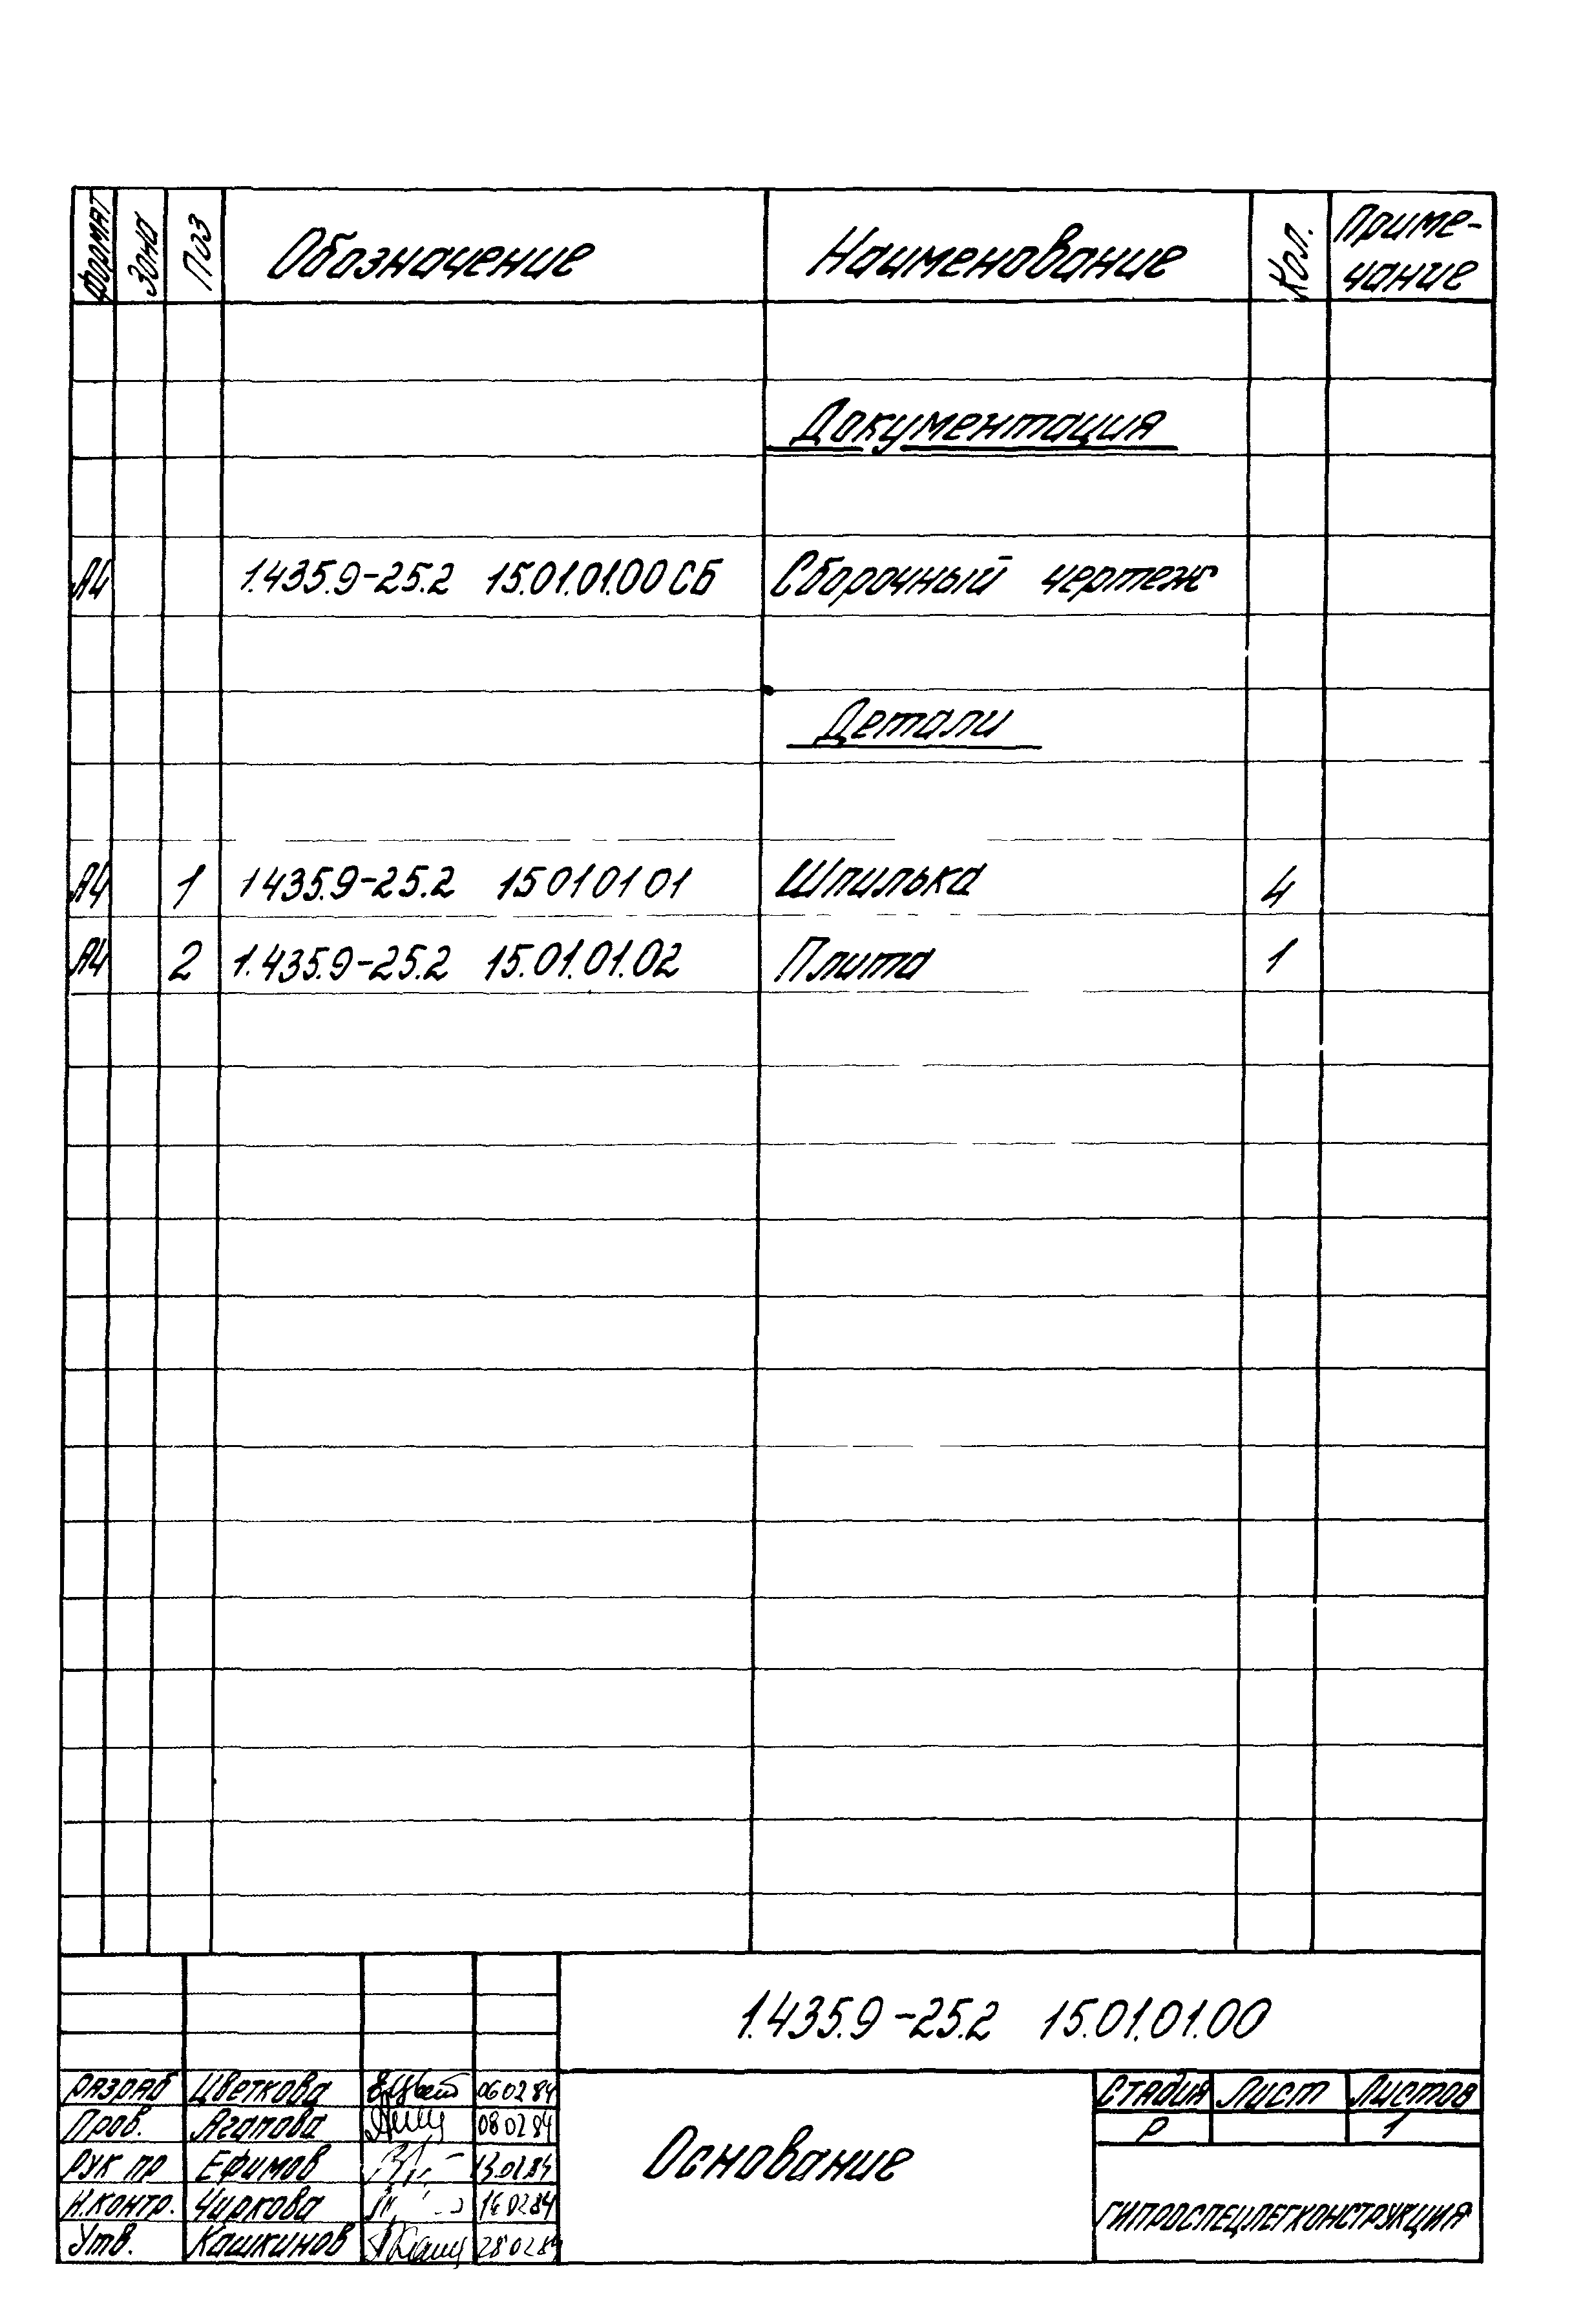 Формат Зона Поз Обозначение Наименование Кол. Приме-
чание
Документация
А4 1.435.9-25.2 15.01.01.00 СБ Сборочный чертеж
Детали
А4 1 1 435.9-25.2 15 01 01 01 Шпилька 4
А4 2 1.435.9-25.2 15.01.01.02 Плита 1
1.435.9-25.2 15.01.01.00
Разраб Цветкова 06 02 84
Пров. Агапова 08 02 84
Рук пр Ефимов 13.02.84
Н.контр. Чиркова 02 84
Утв. Кашкинов 28 02 84
Основание
Стадия Лист Листов
Р 1
ГИПРОСПЕЦЛЕГКОНСТРУКЦИЯ